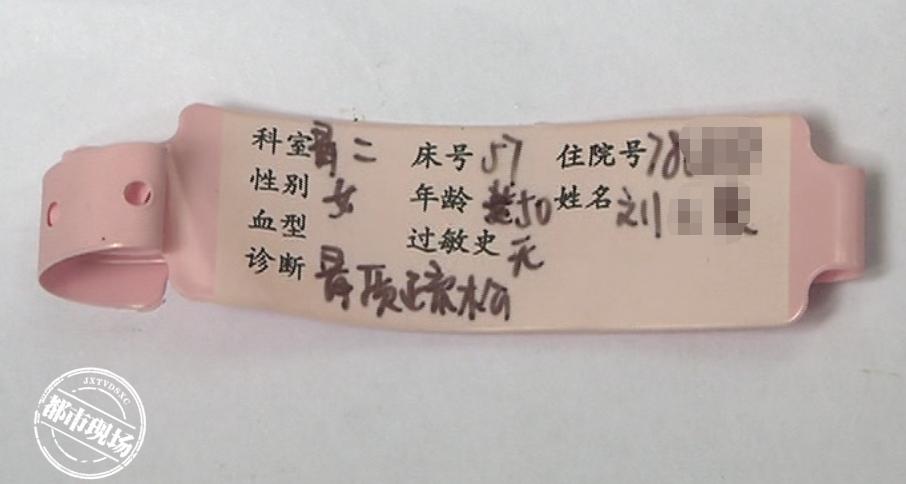 科室骨二 床号57 住院号78
性别女 年龄50 姓名刘
血型 过敏史无
诊断骨质疏松
JXTVDSXC
都市现场